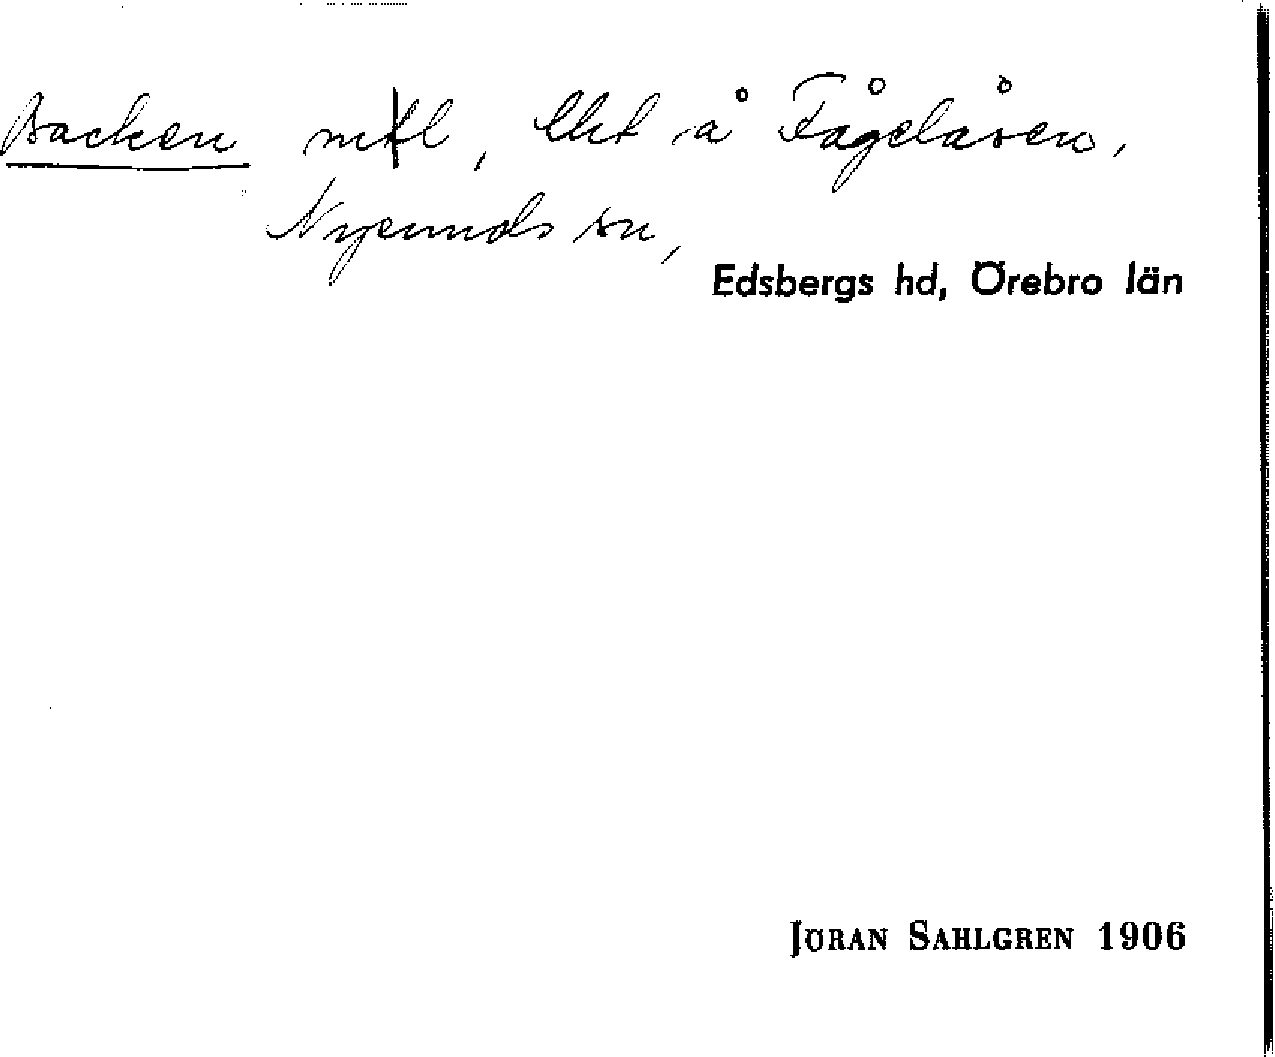 Backen mtl, Utet å Fågelåsen,
Nysunds sn,
Edsbergs hd, Örebro län
JÖRAN SAHLGREN 1906